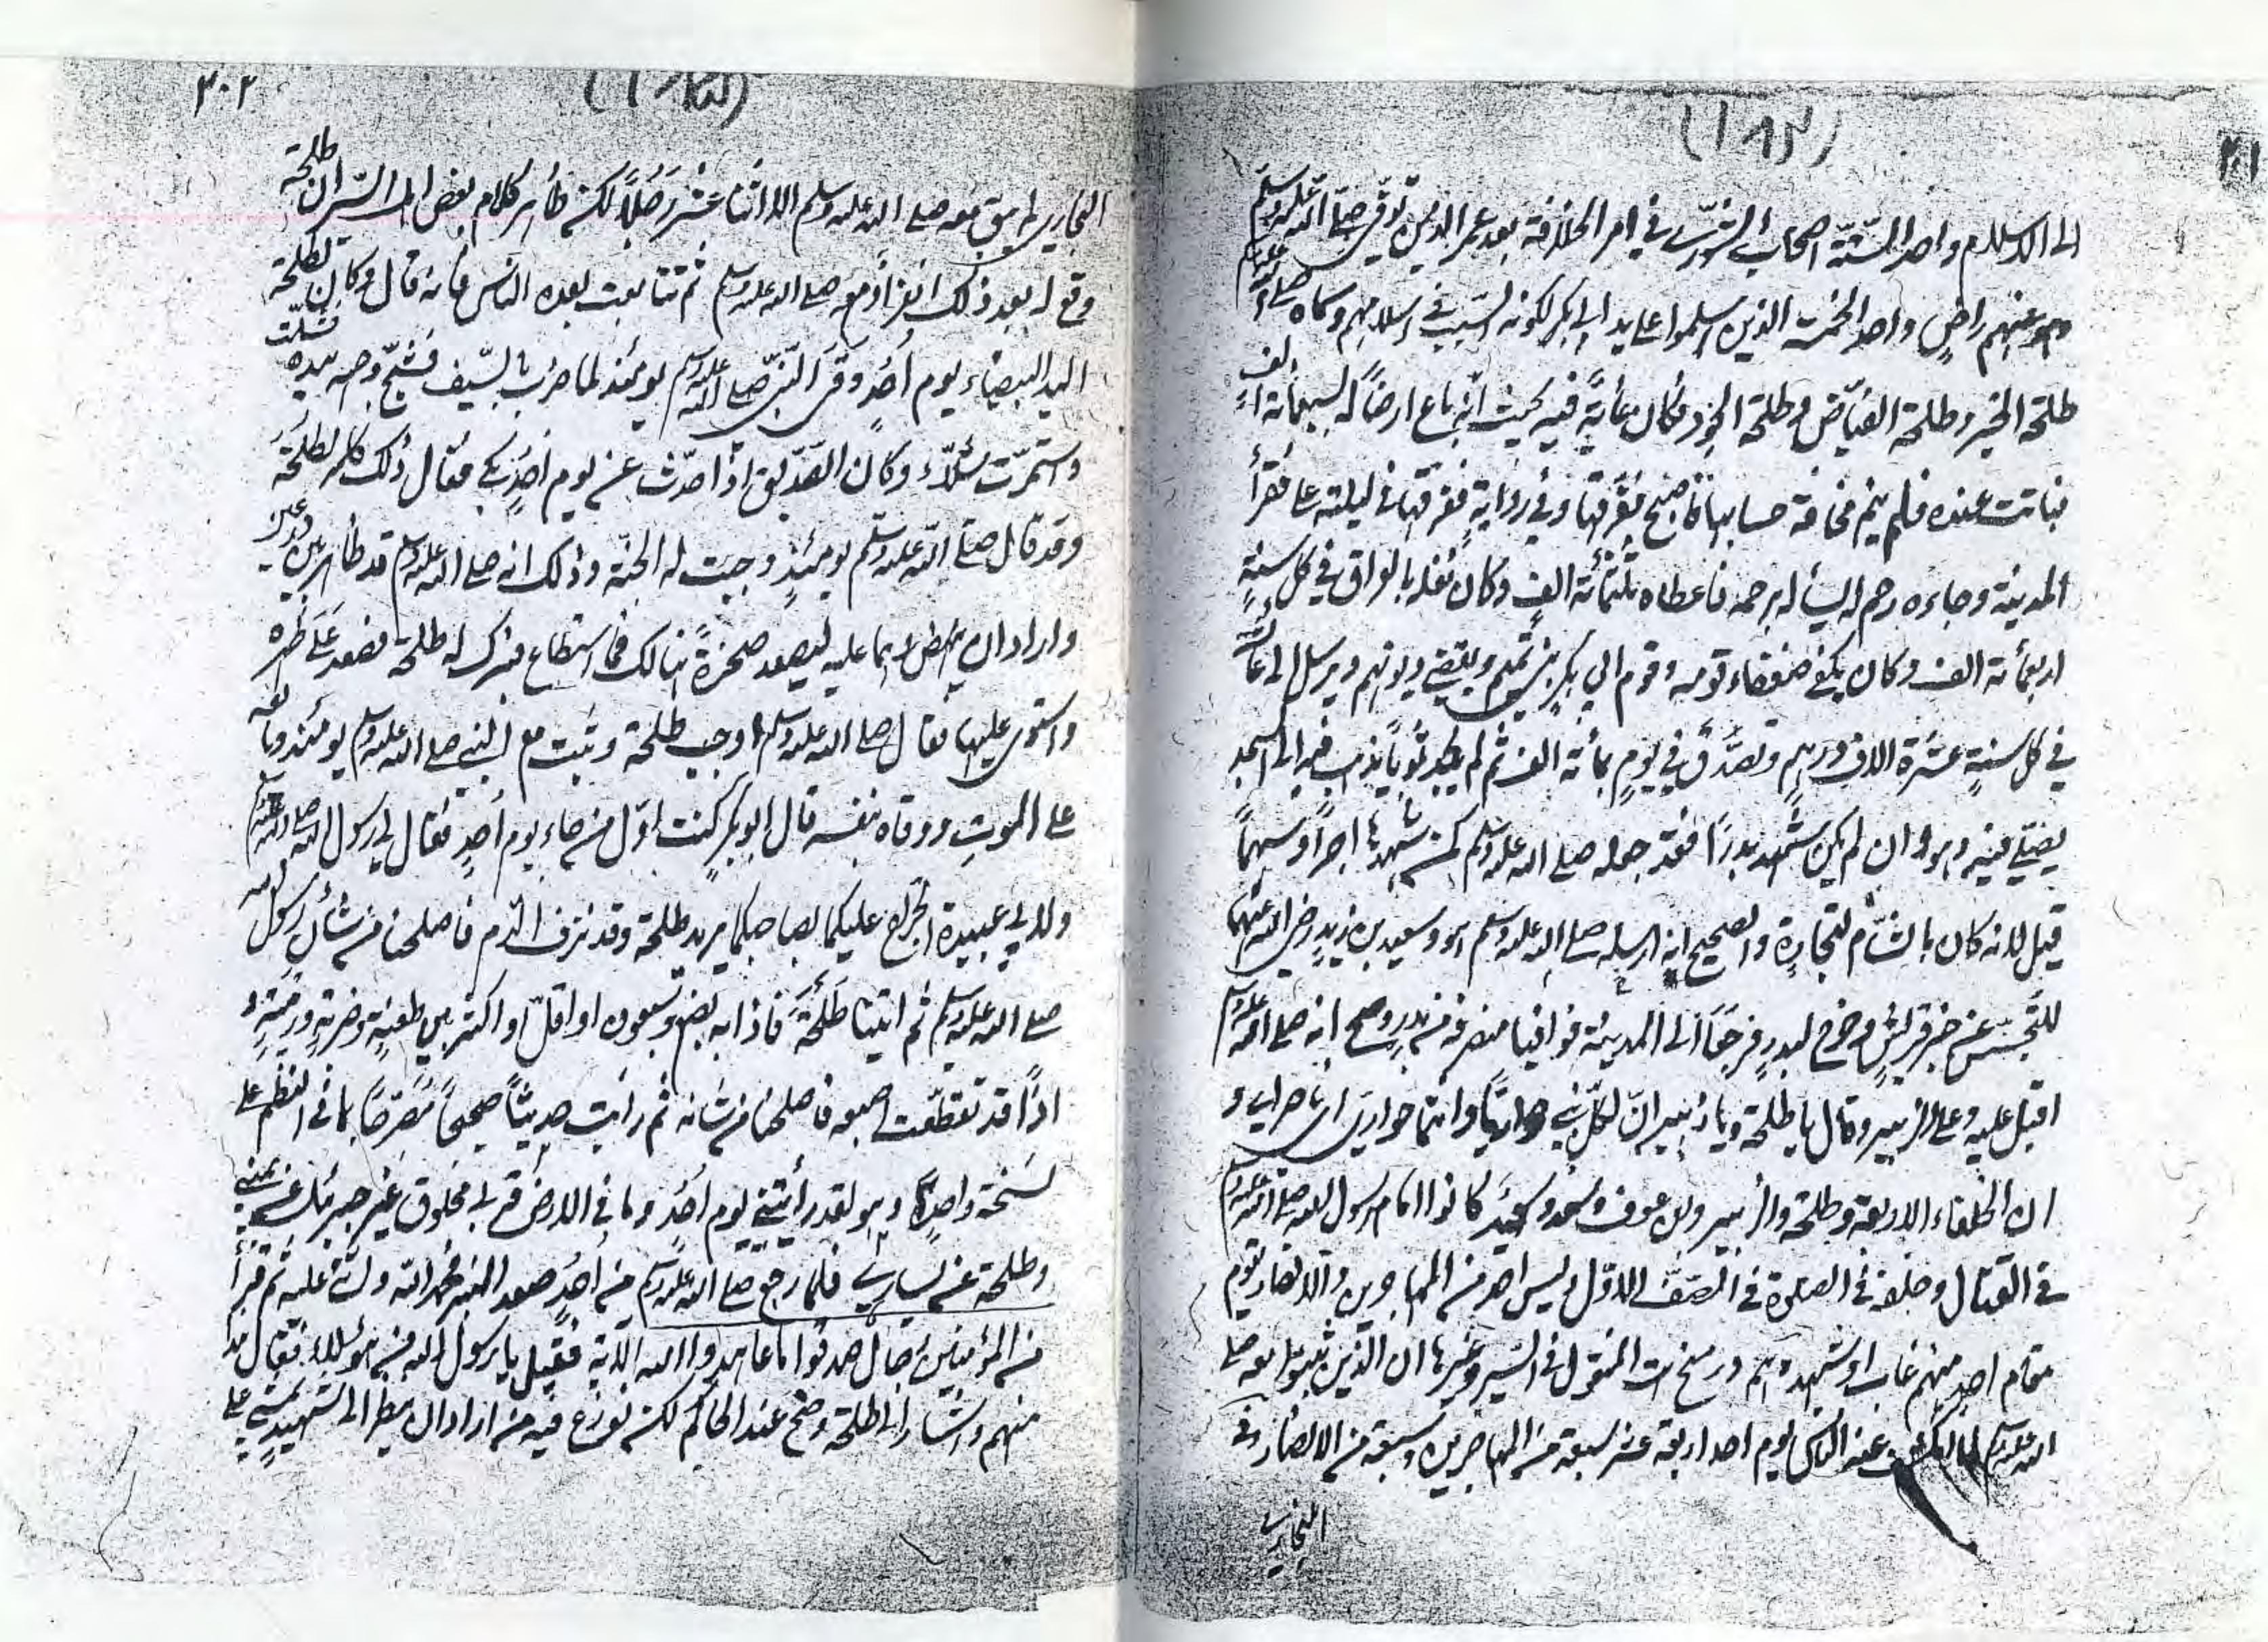 ٢٠١
الى الاسلام واحد الستّة اصحاب الشورى في امر الخلافة بعد عمر الذين توفّى صلى الله عليه وسلم
وهو عنهم راضٍ واحد الخمسة الذين اسلموا على يد ابى بكر لكونه السبب في اسلامهم وسماه صلى الله عليه وسلم
طلحة الخير وطلحة الفيّاض وطلحة الجود وكان غايةً فيه بحيث انّه باع ارضًا له بسبعمائة الف
فباتت عنده فلم ينم مخافة حسابها فاصبح ففرّقها وفي رواية ففرّقها في ليلته على فقرأ
المدينة وجاءه رحم له يسأله برحمه فاعطاه ثلثمائة الف وكان مغله بالعراق في كل سنةٍ
اربعمائة الف وكان يكفي ضعفاء قومه وقوم ابي بكر بني تميم ويقضي ديونهم ويرسل الى عائشة
في كل سنةٍ عشرة الاف درهم وتصدّق في يومٍ بمائة الف ثم لم يجد ثوباً يذهب فيه الى المسجد
يصلّي فيه وهو وان لم يكن شهد بدرًا فقد جعله صلى الله عليه وسلم كمن شهدها اجرًا وسهمًا
قيل لانه كان بالشام لتجارة والصحيح انه ارسله صلى الله عليه وسلم هو وسعيد بن زيدٍ رضي الله عنهما
للتجسّس عن خبر قريشٍ وخرج لبدرٍ فرجعا الى المدينة فوافيا منصرفه من بدرٍ وصح انه صلى الله عليه وسلم
اقبل عليه وعلى الزبير وقال يا طلحة ويا زبير انّ لكل نبي حواريّا وانتما حواريّ اي ناصراي و
ان الخلفاء الاربعة وطلحة والزبير وبن عوف وسعد وسعيد كانوا امام رسول الله صلى الله عليه وسلم
في القتال وخلفه في الصلوة في الصفّ الاوّل وليس احد من المهاجرين والانصار يقوم
مقام احدٍ منهم غاب او شهد المنقول في السير وغيرها ان الذين ثبتوا معه صلى
الله عليه وسلم لما انكشف عنه الناس يوم احد اربعة عشر سبعة من المهاجرين وسبعة من الانصار وفي
البخاري
٢٠٢
البخاري لم يبق معه صلى الله عليه وسلم الا اثنا عشر رجلًا لكن ظاهر كلام بعض اهل السير ان طلحة
وقع له بعد ذلك انفرادٌ معه صلى الله عليه وسلم ثم تتابعت بعده الناس فانه قال وكان لطلحة
اليد البيضاء يوم أحدٍ وقى النبيّ صلى الله عليه وسلم يومئذ لما ضرب بالسّيف فشُجّ وجهه بيده فشلّت
واستمرّت شلّاء وكان الصدّيق اذا حدّث عن يوم أحدٍ بكى فقال ذلك كله لطلحة
وقد قال صلى الله عليه وسلم يومئذٍ وجبت له الجنّة وذلك انه صلى الله عليه وسلم قد ظاهر بين درعين
واراد ان ينهض وهما عليه ليصعد صخرةً هنالك فما استطاع فبرك له طلحة فصعد على ظهره
واستوى عليها فقال صلى الله عليه وسلم اوجب طلحة وثبت مع النبي صلى الله عليه وسلم يومئذ وبايعه
على الموت ووقاه بنفسه قال ابو بكر كنت اوّل من جاء يوم أحدٍ فقال لي رسول الله صلى الله عليه وسلم
ولابي عبيدة الجراح عليكما بصاحبكما يريد طلحة وقد نزف الدّم فاصلحنا من شأن رسول الله
صلى الله عليه وسلم ثم اتينا طلحة فاذا به بضع وسبعون او اقلّ او اكثر بين طعنةٍ وضربةٍ ورميةٍ
اذًا قد تقطّعت اصبعه فاصلحنا من شانه ثم رأيت حديثاً صحيحًا مصرّحًا بما في النظم على
نسخة واحدٍ وهو لقد رأيتني يوم أحد وما في الارض قربي مخلوق غير جبرئيل عن يميني
وطلحة عن يساري فلما رجع صلى الله عليه وسلم من أحدٍ صعد المنبر فحمد الله واثنى عليه ثم قرأ
من المؤمنين رجال صدقوا ما عاهدوا الله الآية فقيل يا رسول الله من هؤلاء فقال هذا
منهم واشار الى طلحة وصح عند الحاكم لكن نوزع فيه من اراد ان ينظر الى شهيدٍ يمشي على